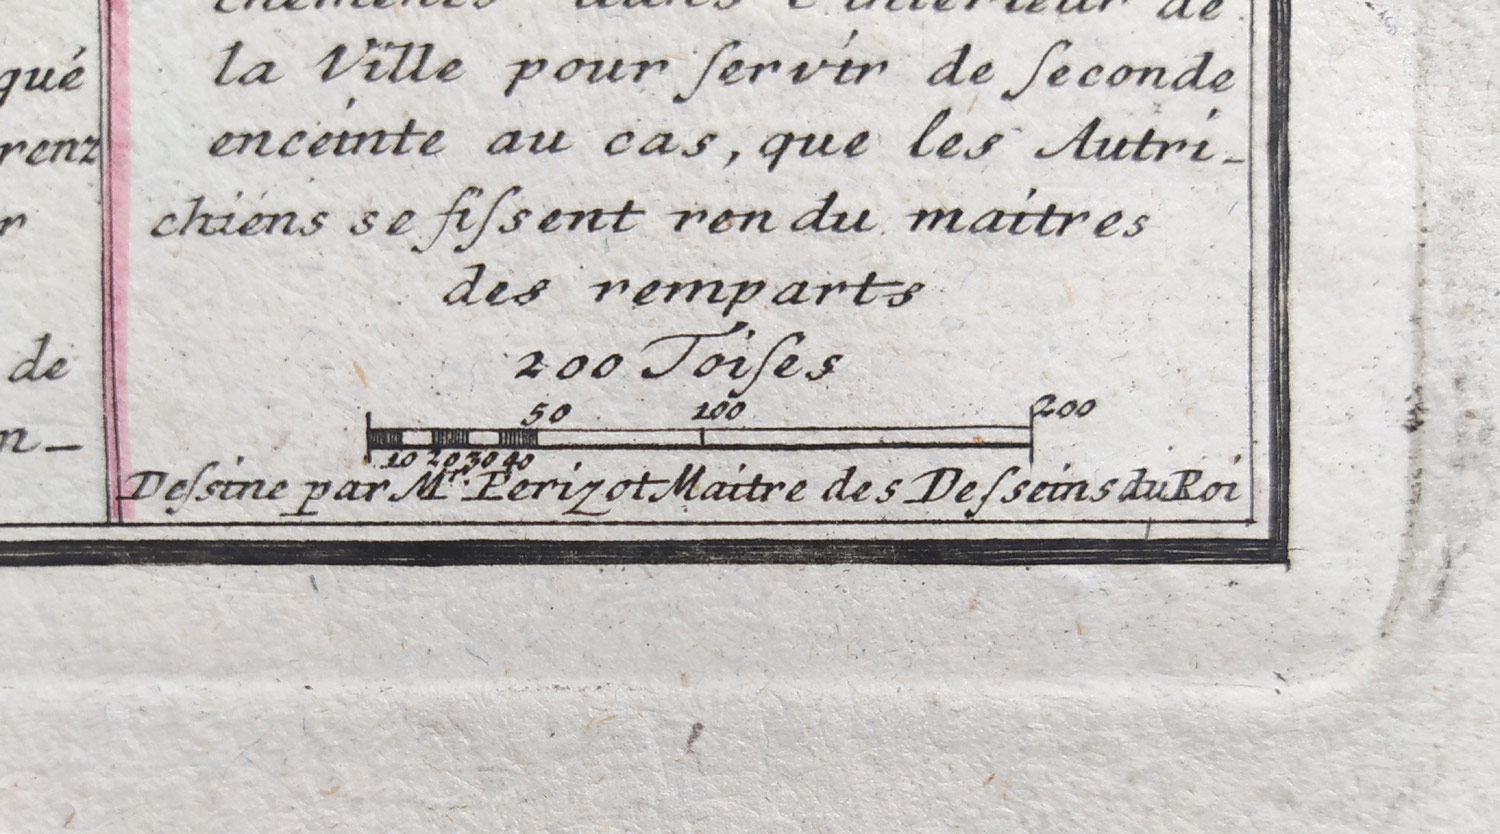 qué
renz
r
de
n-
chements dans l'interieur de
la Ville pour ſervir de ſeconde
enceinte au cas, que les Autri-
chiens se fiſsent rendu maitres
des remparts
200 Toiſes
50 100 200
10 20 30 40
Deſsine par Mr. Perizot Maitre des Deſseins du Roi